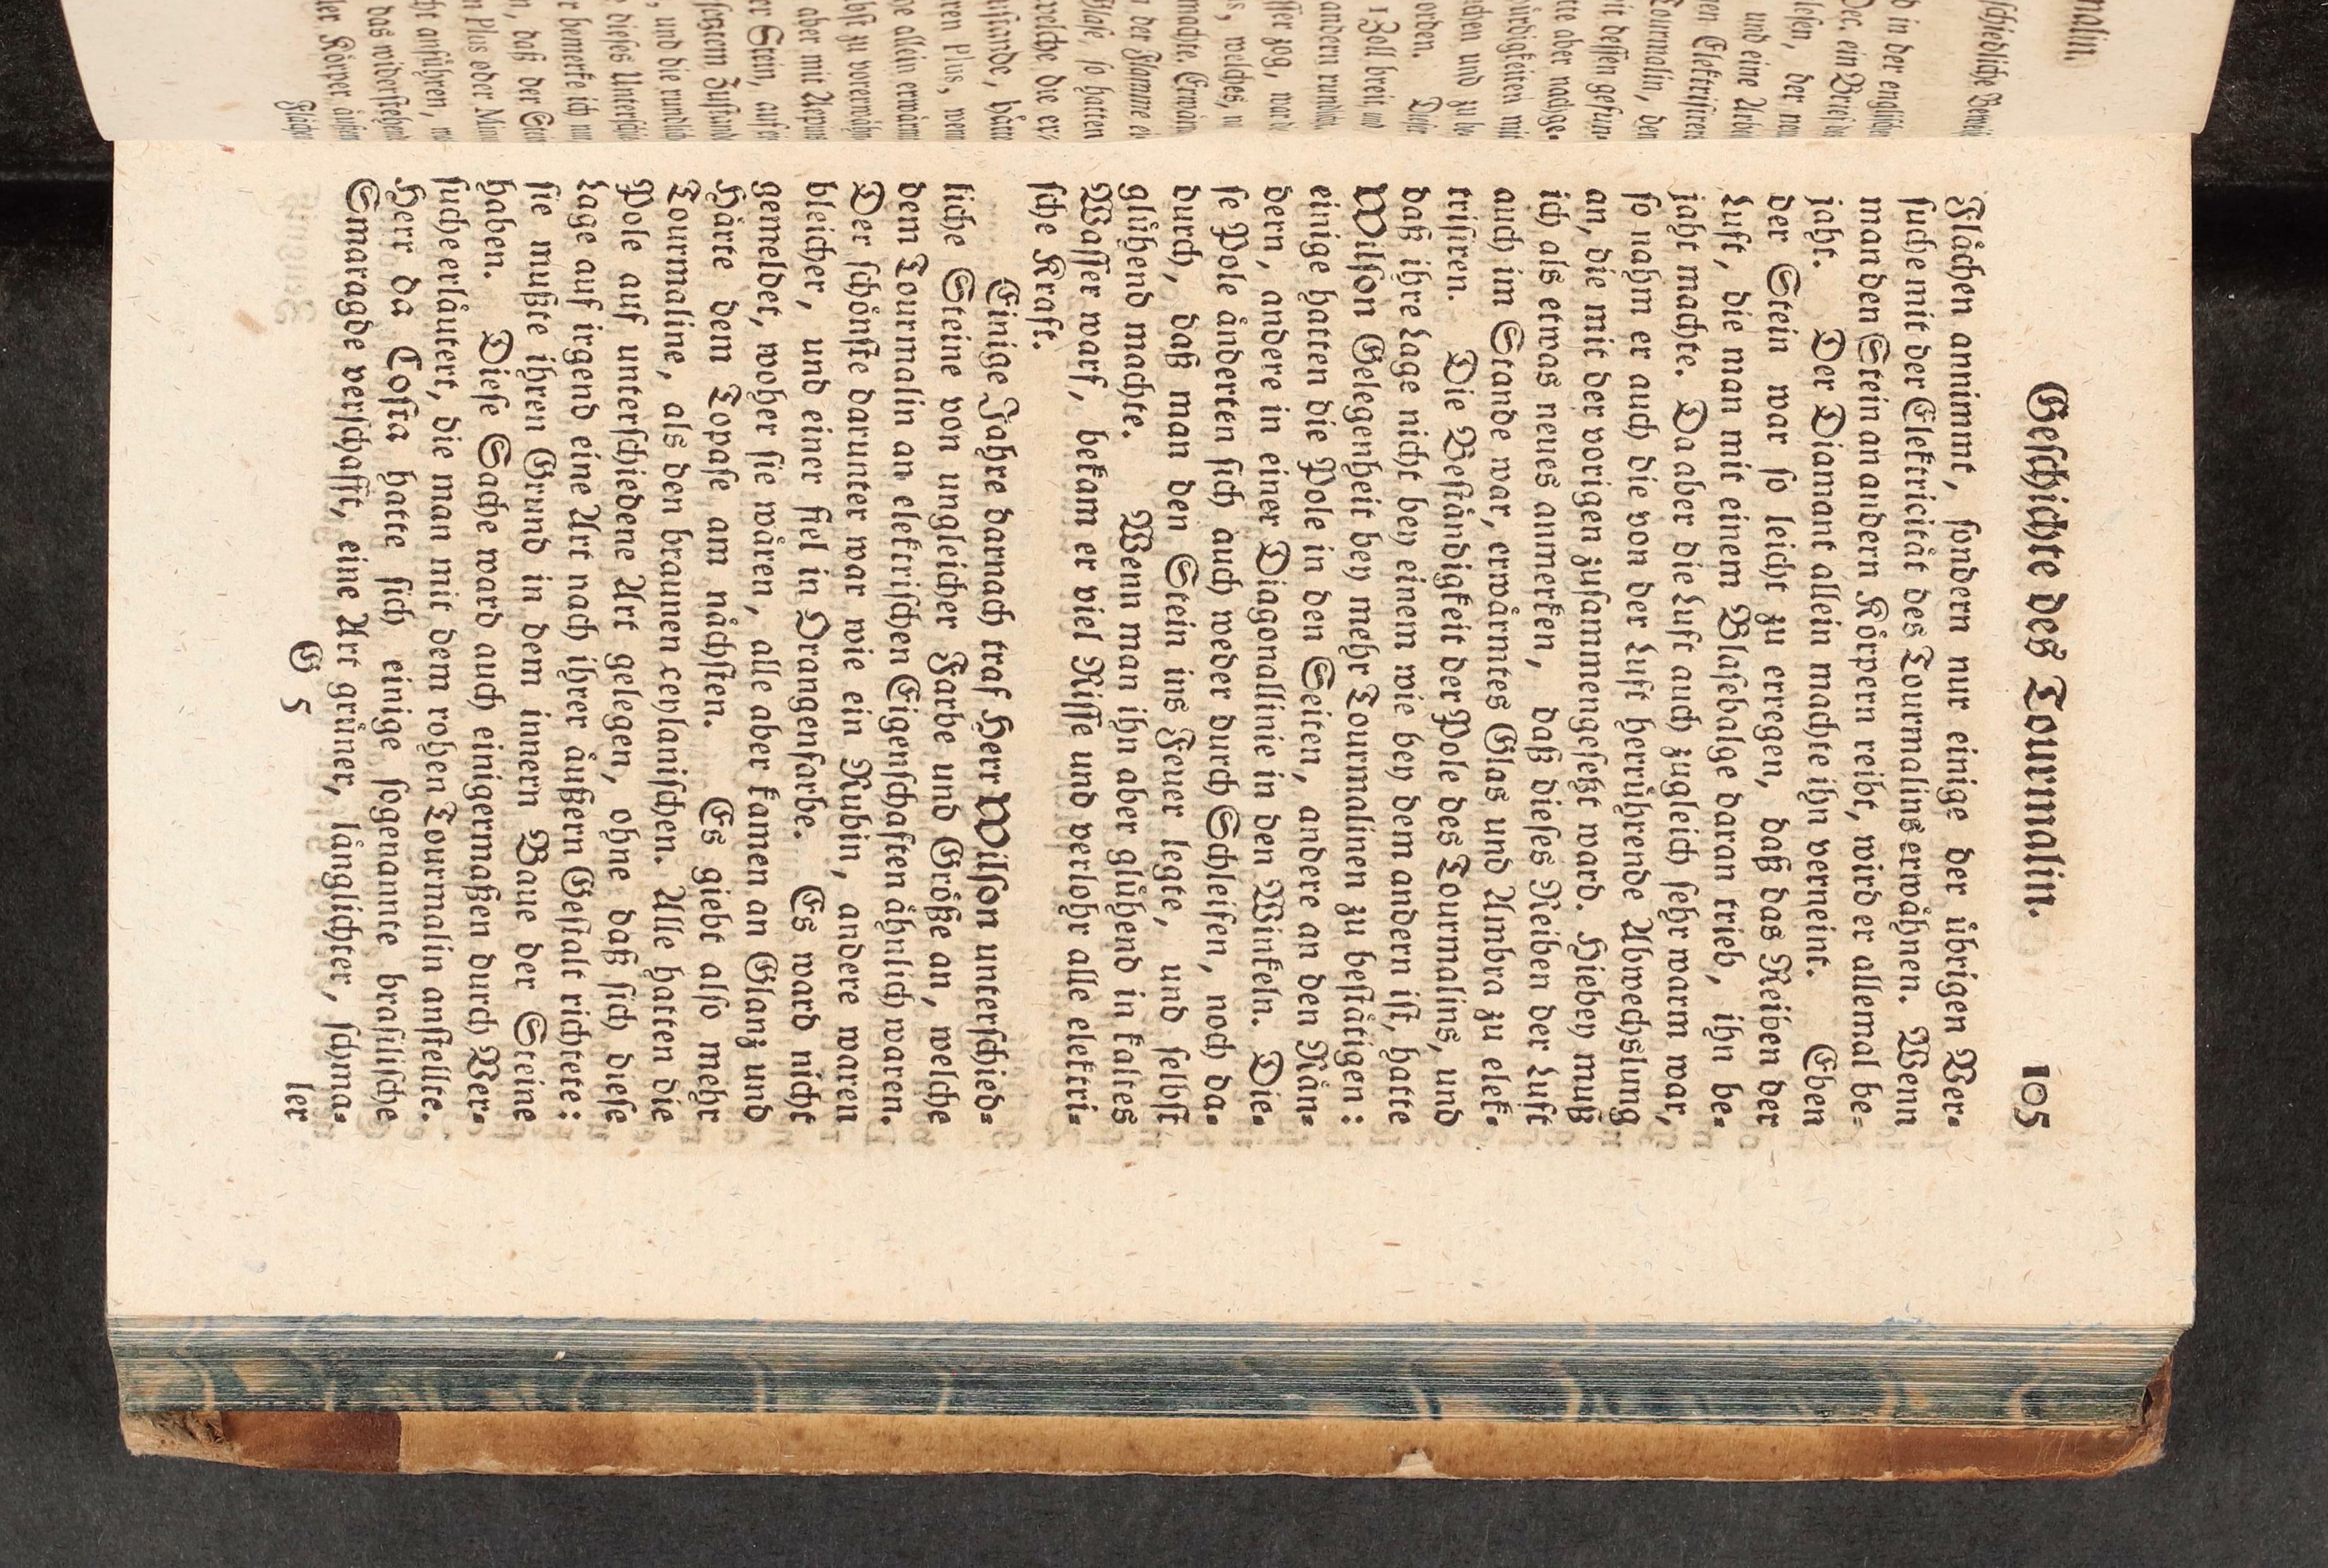 Geschichte des Tourmalin. 105
Flächen annimmt, sondern nur einige der übrigen Ver-
suche mit der Elektricität des Tourmalins erwähnen. Wenn
man den Stein an andern Körpern reibt, wird er allemal be-
jaht. Der Diamant allein machte ihn verneint. Eben
der Stein war so leicht zu erregen, daß das Reiben der
Luft, die man mit einem Blasebalge daran trieb, ihn be-
jaht machte. Da aber die Luft auch zugleich sehr warm war,
so nahm er auch die von der Luft herrührende Abwechslung
an, die mit der vorigen zusammengesetzt ward. Hiebey muß
ich als etwas neues anmerken, daß dieses Reiben der Luft
auch im Stande war, erwärmtes Glas und Ambra zu elek-
trisiren. Die Beständigkeit der Pole des Tourmalins, und
daß ihre Lage nicht bey einem wie bey dem andern ist, hatte
Wilson Gelegenheit bey mehr Tourmalinen zu bestätigen:
einige hatten die Pole in den Seiten, andere an den Rän-
dern, andere in einer Diagonallinie in den Winkeln. Die-
se Pole änderten sich auch weder durch Schleifen, noch da-
durch, daß man den Stein ins Feuer legte, und selbst
glühend machte. Wenn man ihn aber glühend in kaltes
Wasser warf, bekam er viel Risse und verlohr alle elektri-
sche Kraft.
Einige Jahre darnach traf Herr Wilson unterschied-
liche Steine von ungleicher Farbe und Größe an, welche
dem Tourmalin an elektrischen Eigenschaften ähnlich waren.
Der schönste darunter war wie ein Rubin, andere waren
bleicher, und einer fiel in Orangenfarbe. Es ward nicht
gemeldet, woher sie wären, alle aber kamen an Glanz und
Härte dem Topase am nächsten. Es giebt also mehr
Tourmaline, als den braunen ceylanischen. Alle hatten die
Pole auf unterschiedene Art gelegen, ohne daß sich diese
Lage auf irgend eine Art nach ihrer äußern Gestalt richtete:
sie mußte ihren Grund in dem innern Baue der Steine
haben. Diese Sache ward auch einigermaßen durch Ver-
suche erläutert, die man mit dem rohen Tourmalin anstellte.
Herr da Costa hatte sich einige sogenannte brasilische
Smaragde verschafft, eine Art grüner, länglichter, schma-
G 5 ler